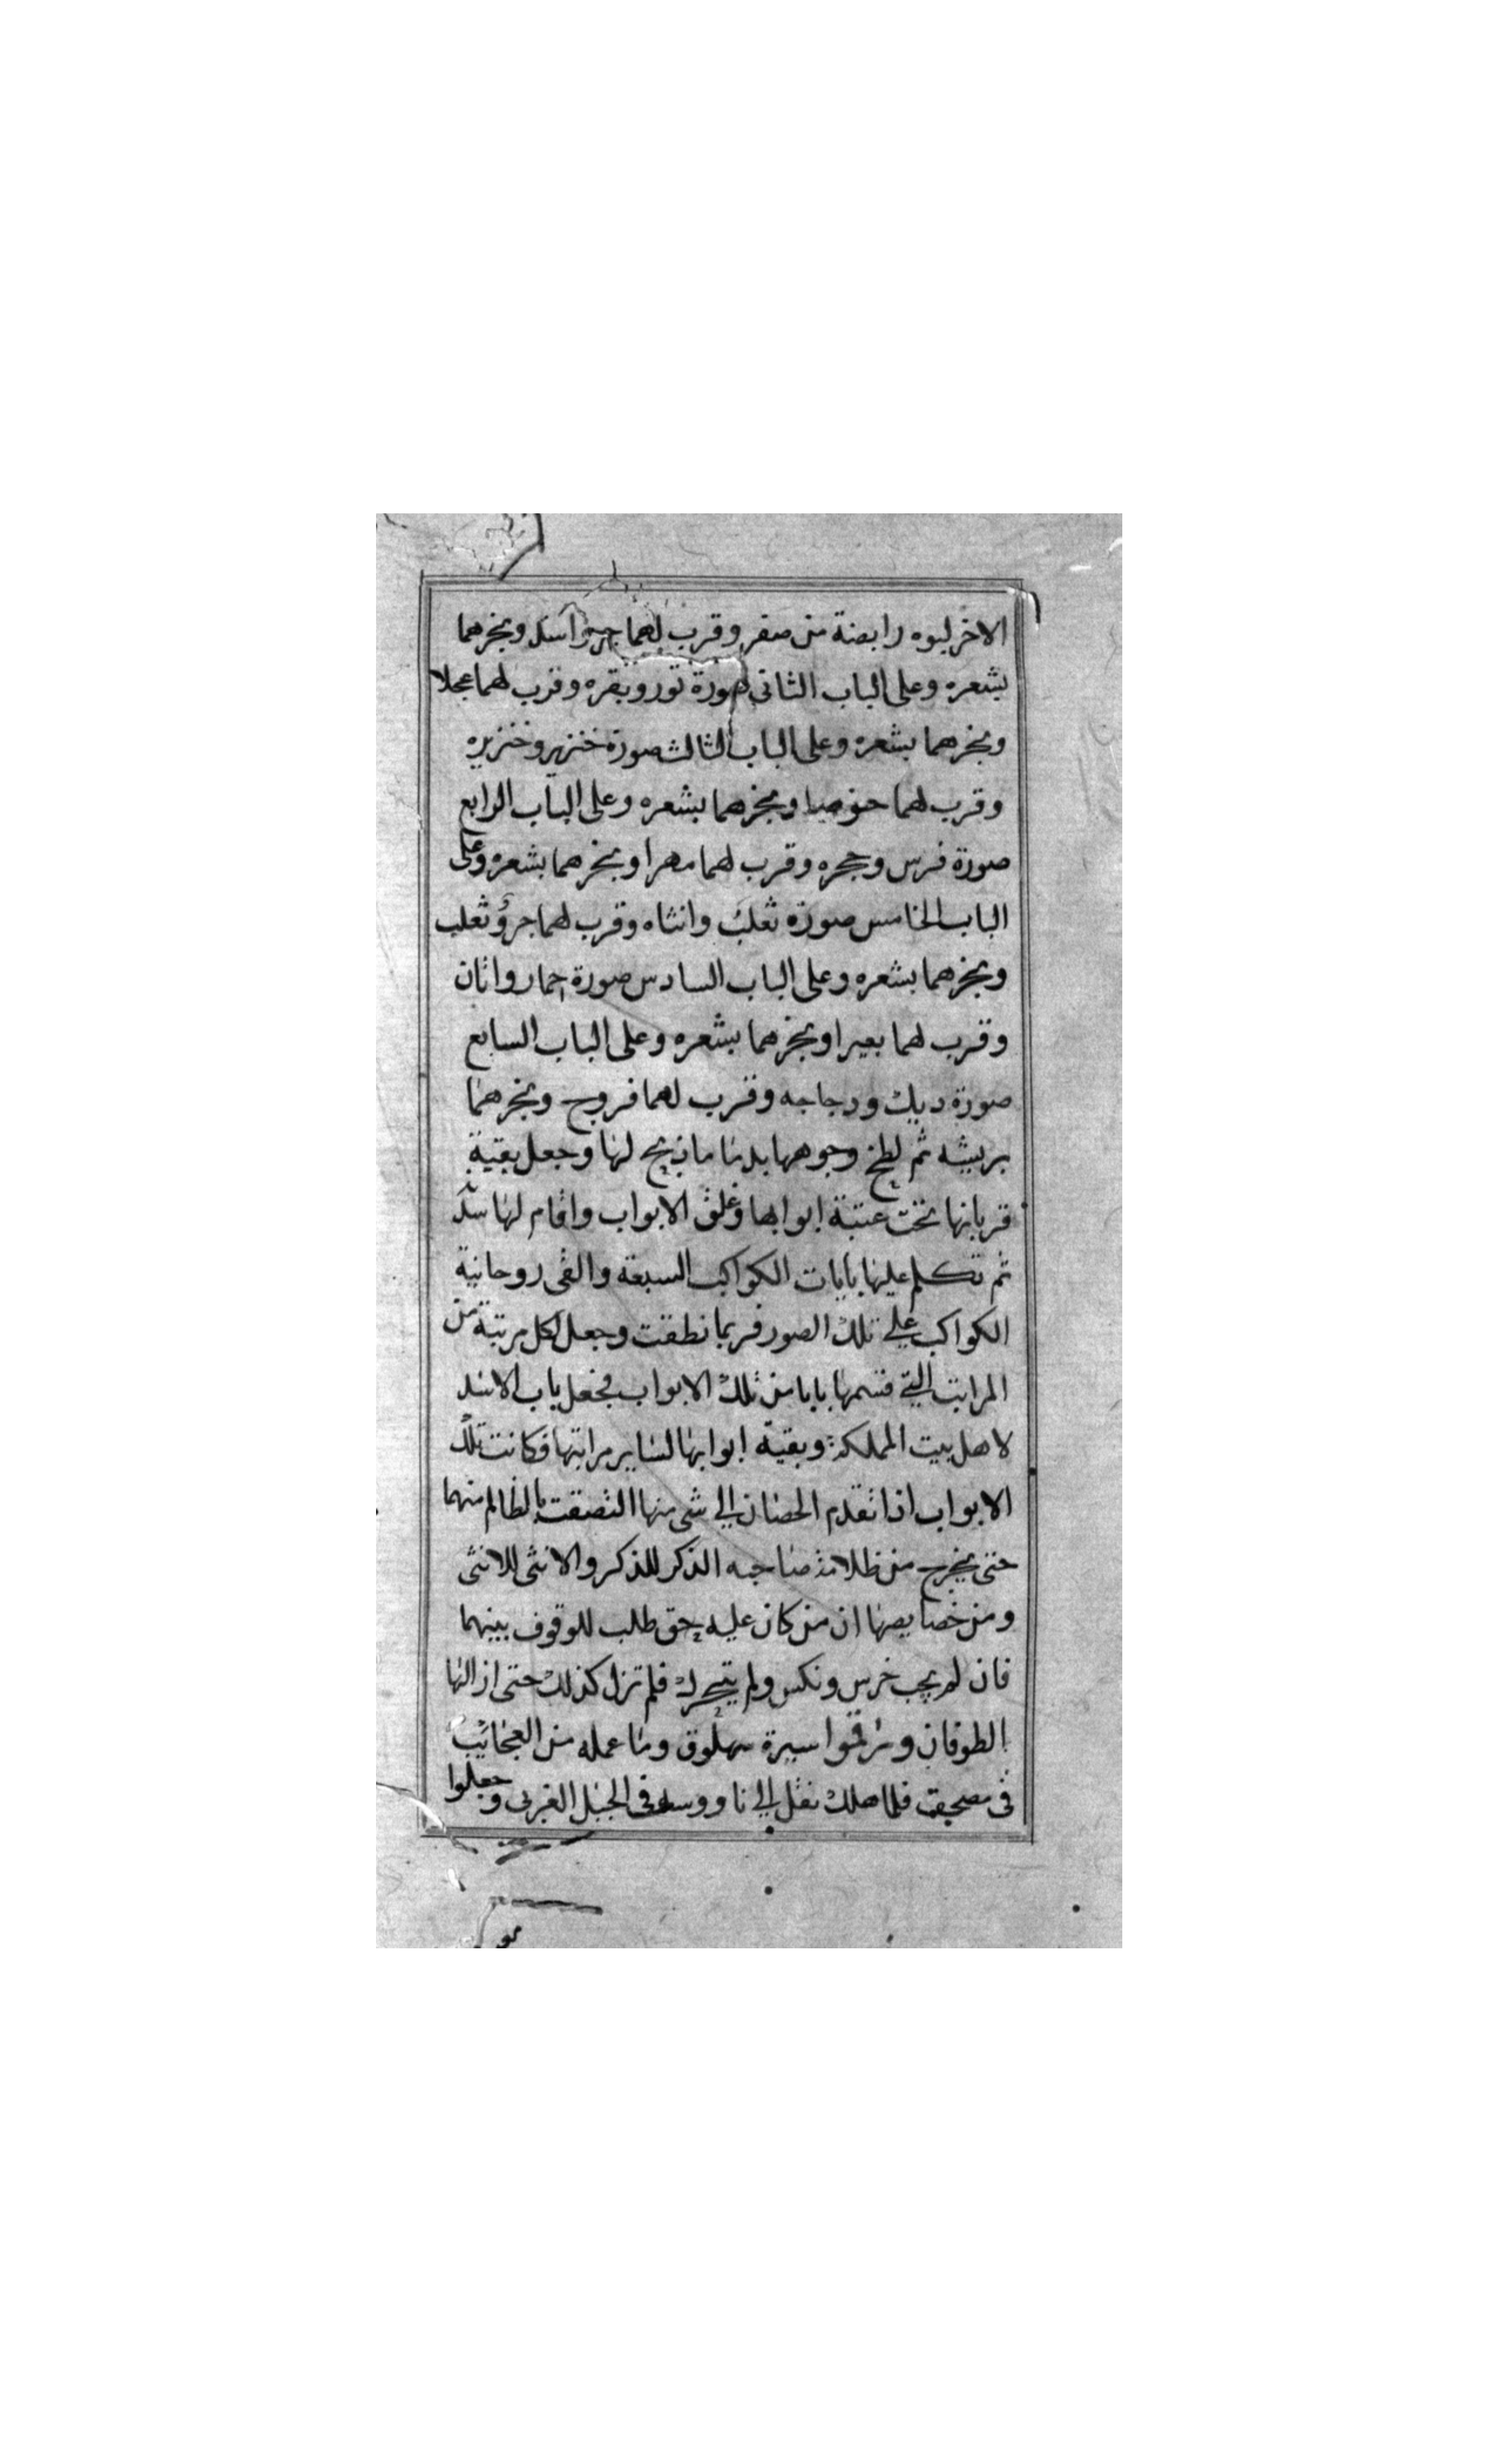 الاخر لبوه رابضة من صفر وقرب لهما جرو اسد وبخرهما
بشعره وعلى الباب الثانى صورة ثور وبقره وقرب لهما عجلا
وبخرهما بشعره وعلى الباب الثالث صورة خنزير وخنزيره
وقرب لهما خنوصا وبخرهما بشعره وعلى الباب الرابع
صورة فرس وحجره وقرب لهما مهرا وبخرهما بشعره وعلى
الباب الخامس صورة ثعلب وانثاه وقرب لهما جرؤ ثعلب
وبخرهما بشعره وعلى الباب السادس صورة حمار واتان
وقرب لهما بعيرا وبخرهما بشعره وعلى الباب السابع
صورة ديك ودجاجه وقرب لهما فروج وبخرهما
بريشه ثم لطخ وجوهها بدما ما ذبح لها وجعل بقية
قربانها تحت عتبة ابوابها وغلق الابواب واقام لها سد
ثم تكلم عليها بايات الكواكب السبعة والقى روحانية
الكواكب على تلك الصور فربما نطقت وجعل لكل مرتبة من
المراتب التي قسمها بابا من تلك الابواب فجعل باب الاسد
لاهل بيت المملكة وبقية ابوابها لساير مراتبها فكانت تلك
الابواب اذا تقدم الخصمان الى شى منها التصقت بالظالم منهما
حتى يخرج من ظلامة صاحبه الذكر للذكر والانثى للانثى
ومن خصايصها ان من كان عليه حق طلب للوقوف بينهما
فان لم يجب خرس ونكس ولم يتحرك فلم تزل كذلك حتى ازالها
الطوفان ورقموا سيرة سهلوق وما عمله من العجائب
فى مصحف فلما هلك نقل الى ناووسه فى الجبل الغربى وجعلوا